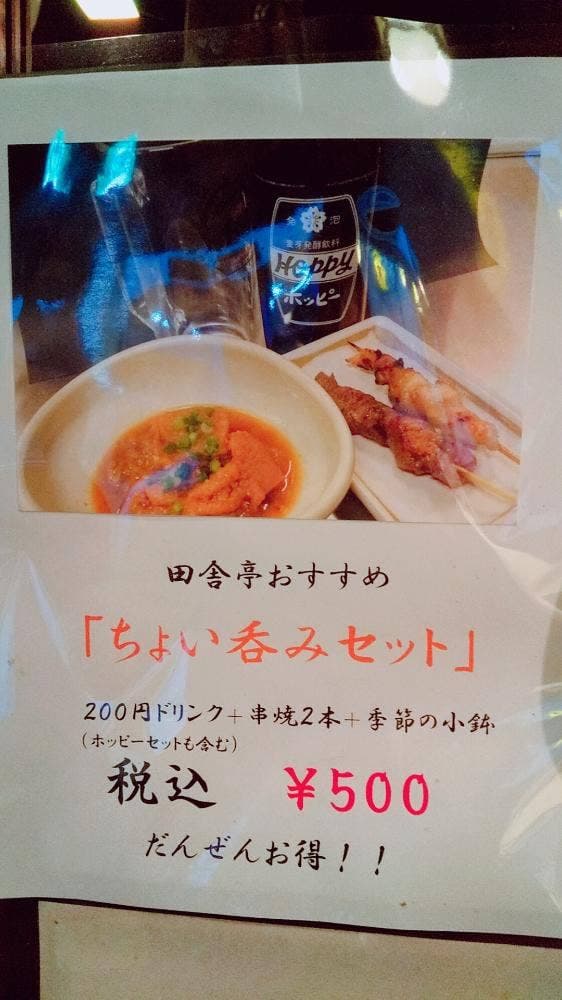 金 泡
麦芽発酵飲料
Hoppy
ホッピー
田舎亭おすすめ
「ちょい呑みセット」
200円ドリンク+串焼2本+季節の小鉢
(ホッピーセットも含む)
税込 ¥500
だんぜんお得!!